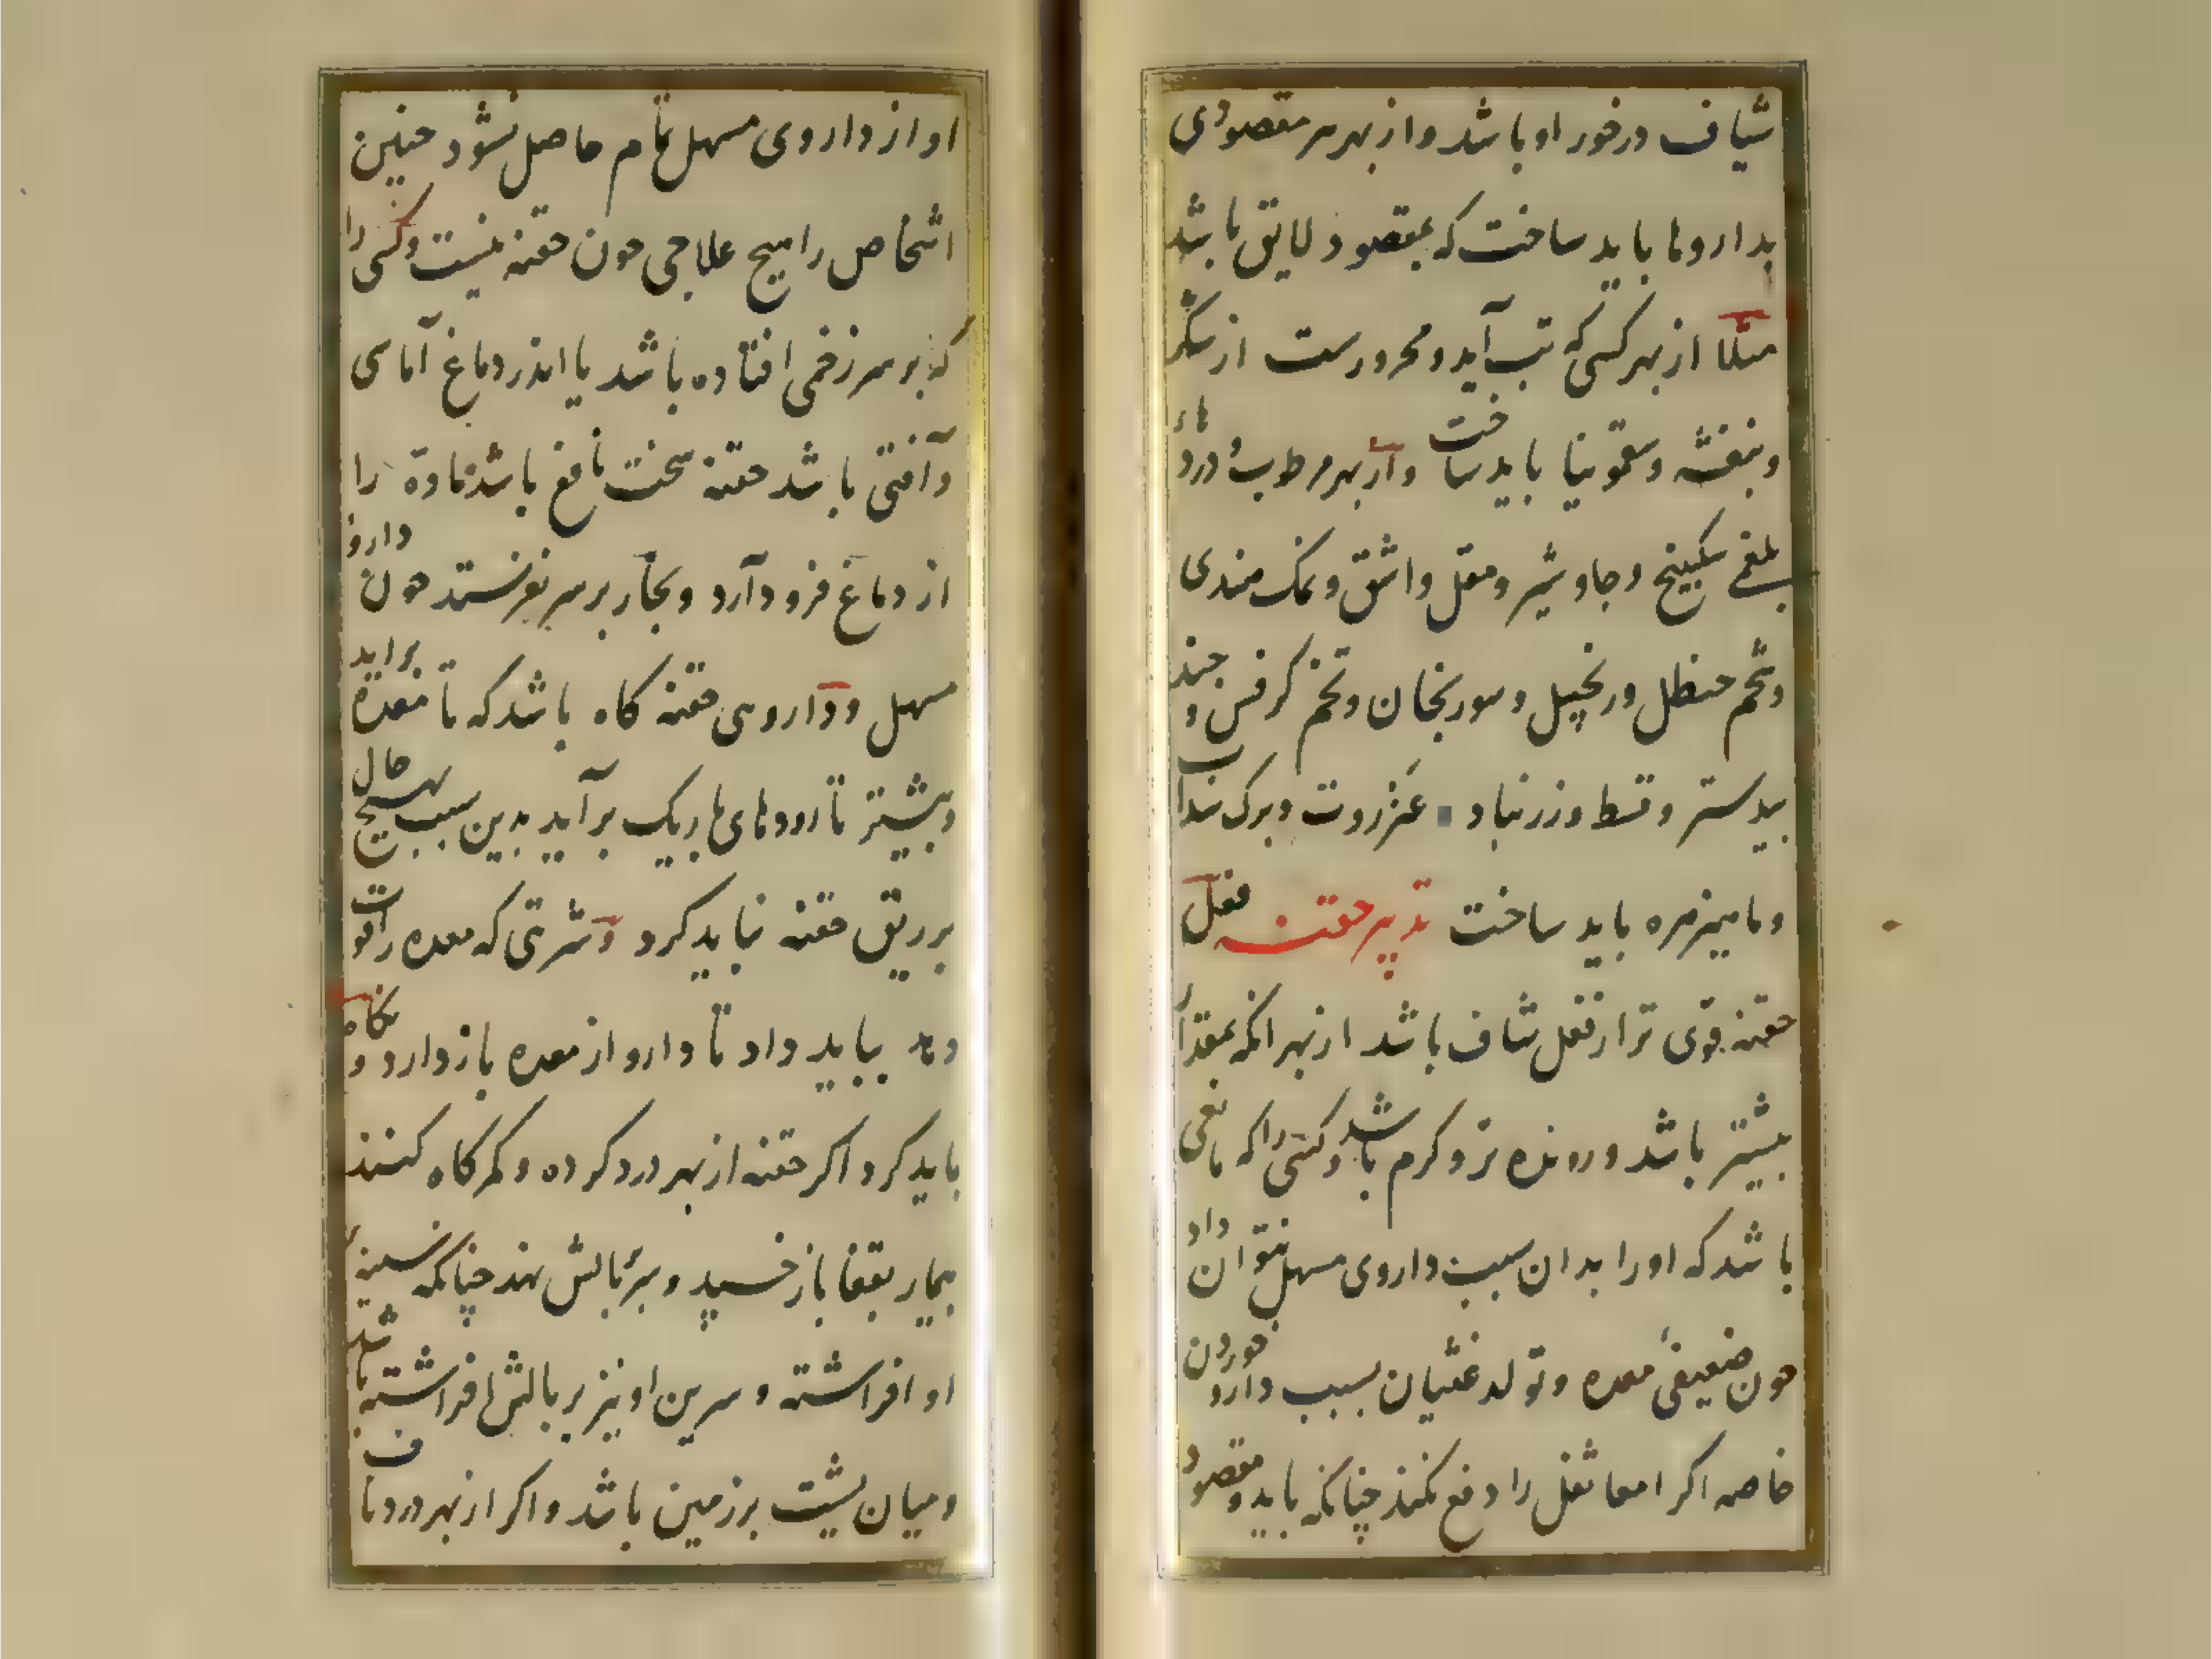 شیاف درخور او باشد و از بهر هر مقصودی
بداروها باید ساخت که بمقصود لایق باشد
مثلا از بهر کسی که تب آید و محرورست از شکر
و بنفشه و سقمونیا باید ساخت و از بهر مرطوب و دردهاء
بلغمی سکبینج و جاوشیر و مقل و اشق و نمک هندی
و شحم حنظل و زنجبیل و سورنجان و تخم کرفس و جند
بیدستر و قسط و زرنباد عنزروت و برک سنداب
و ماهیزهره باید ساخت تدبیر حقنه فعل
حقنه قوی تر از فعل شاف باشد از بهر انکه بمقدار
بیشتر باشد و رونده تر و کرم باشد و کسی را که مانعی
باشد که او را بدان سبب داروی مسهل نتوان داد
چون ضعیفی معده و تولد غثیان بسبب دارو خوردن
خاصه اکر امعا ثفل را دفع نکند چنانکه باید و مقصود
او از داروی مسهل تمام حاصل نشود چنین
اشخاص را هیچ علاجی چون حقنه نیست و کسی را
که بر سر زخمی افتاده باشد یا اندر دماغ آماسی
و آفتی باشد حقنه سخت نافع باشد ماده را
از دماغ فرود آرد و بخار بر سر نفرستد چون دارو
مسهل و داروی حقنه کاه باشد که تا معده براید
و بیشتر تا رودهای باریک بر آید بدین سبب بهیچ حال
بر ریق حقنه نباید کرد و شربتی که معده را قوت
دهد بباید داد تا دارو از معده باز دارد و نکاه
باید کرد اکر حقنه از بهر درد کرده و کمرکاه کنند
بیمار بقفا باز خسپد و سر ببالش نهد چنانکه سینه
او افراشته و سرین او نیز بر بالش افراشته باشد
و میان پشت بر زمین باشد و اکر از بهر درد ناف